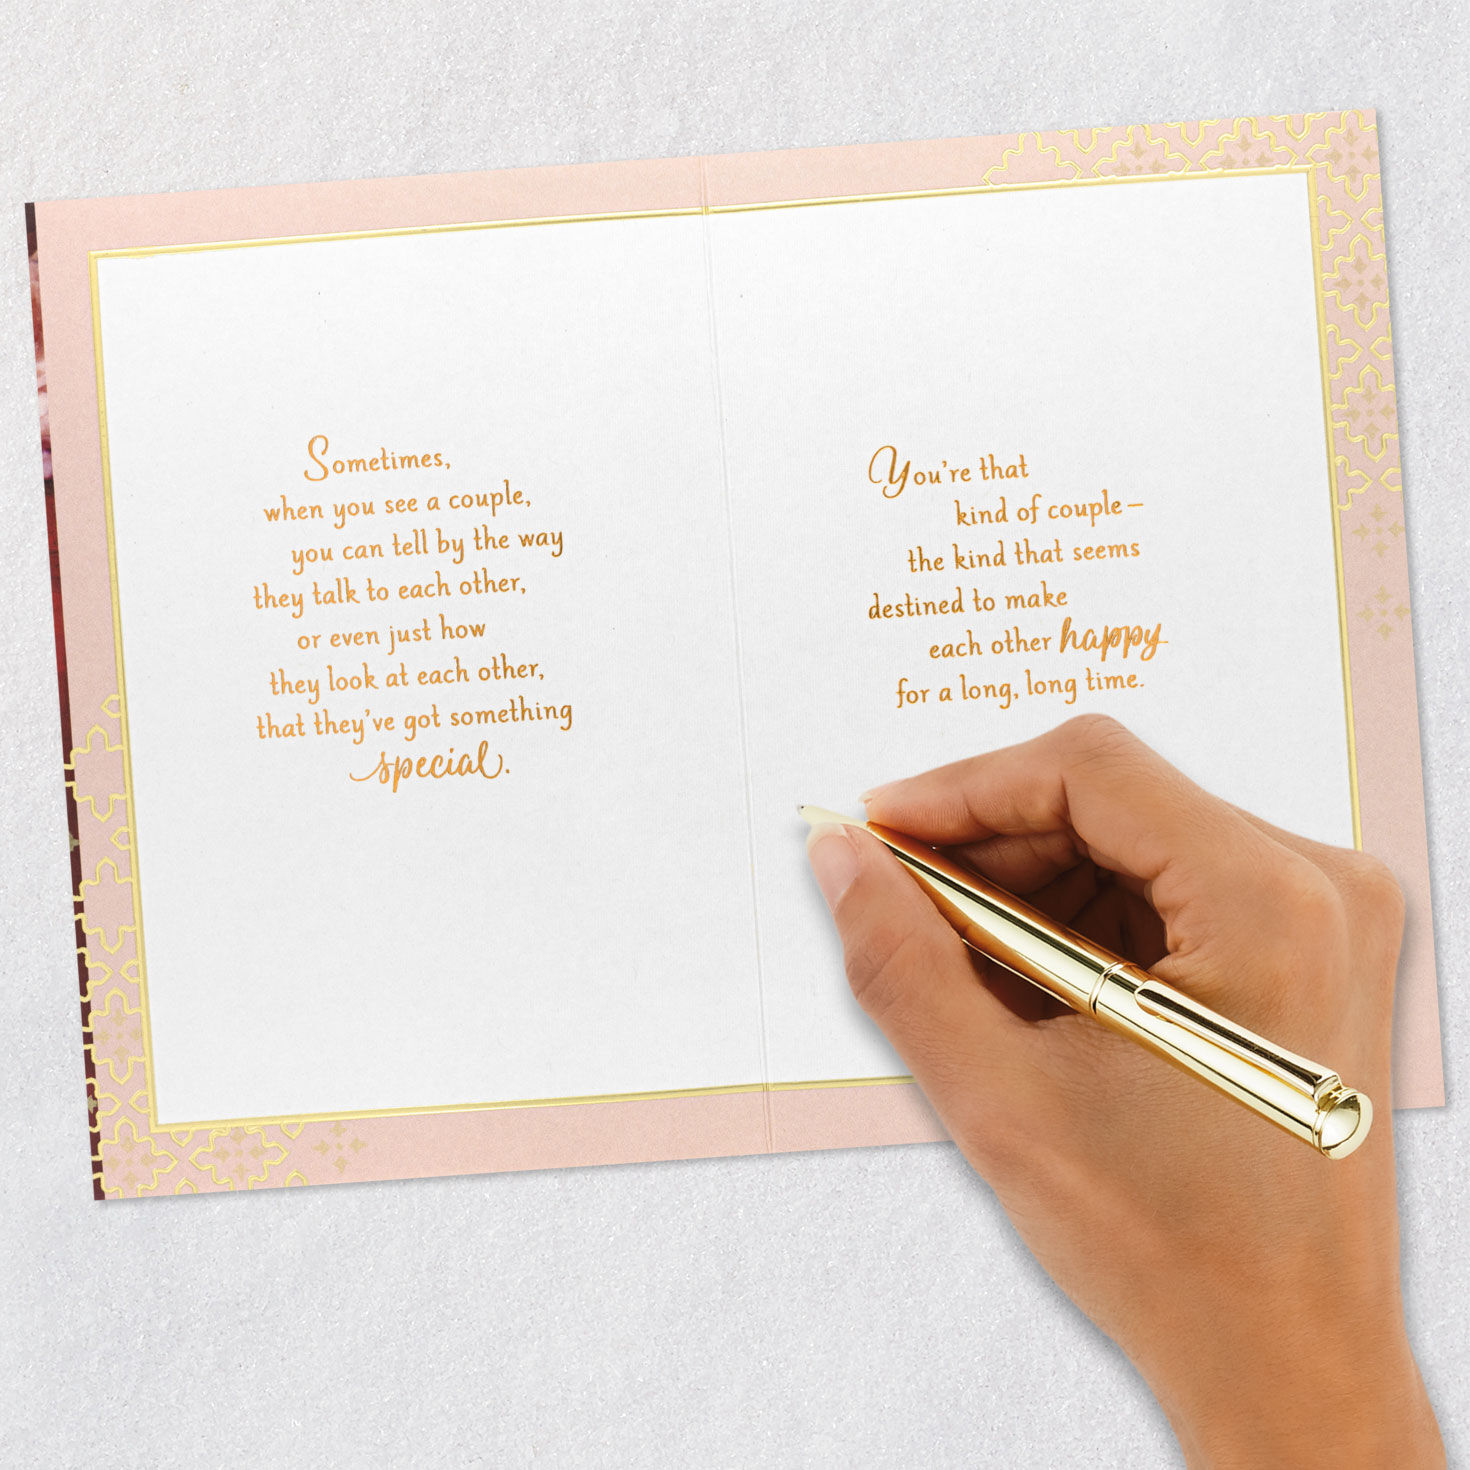 Sometimes,
when you see a couple,
you can tell by the way
they talk to each other,
or even just how
they look at each other,
that they've got something
special.
You're that
kind of couple–
the kind that seems
destined to make
each other happy
for a long, long time.